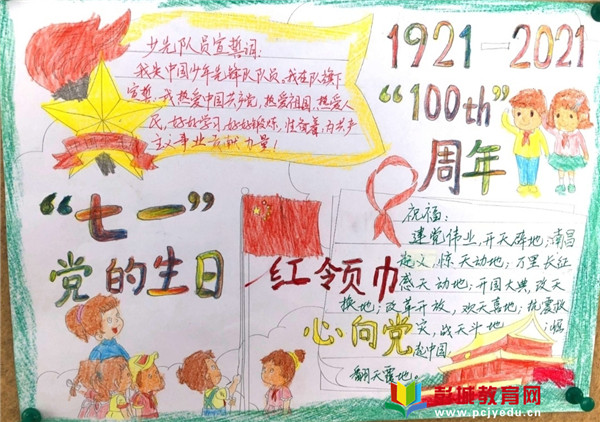 少先队员宣誓词:
我是中国少年先锋队队员。我在队旗下
宣誓:我热爱中国共产党,热爱祖国,热爱人
民,好好学习,好好锻炼,准备着,为共产
主义事业贡献力量!
1921—2021
“100th”
周年
“七一”
党的生日
红领巾
心向党
祝福:
建党伟业,开天辟地;南昌
起义,惊天动地;万里长征
感天动地;开国大典,改天
换地;改革开放,欢天喜地;抗震救
灾,战天斗地
中国
翻天覆地。
彭城教育网
www.pcjyedu.cn